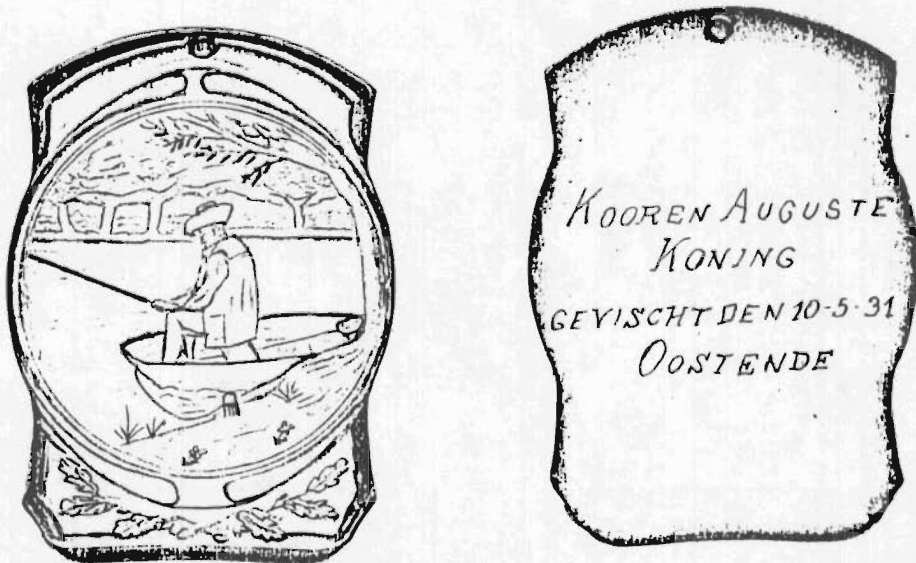 KOOREN AUGUSTE
KONING
GEVISCHT DEN 10-5-31
OOSTENDE